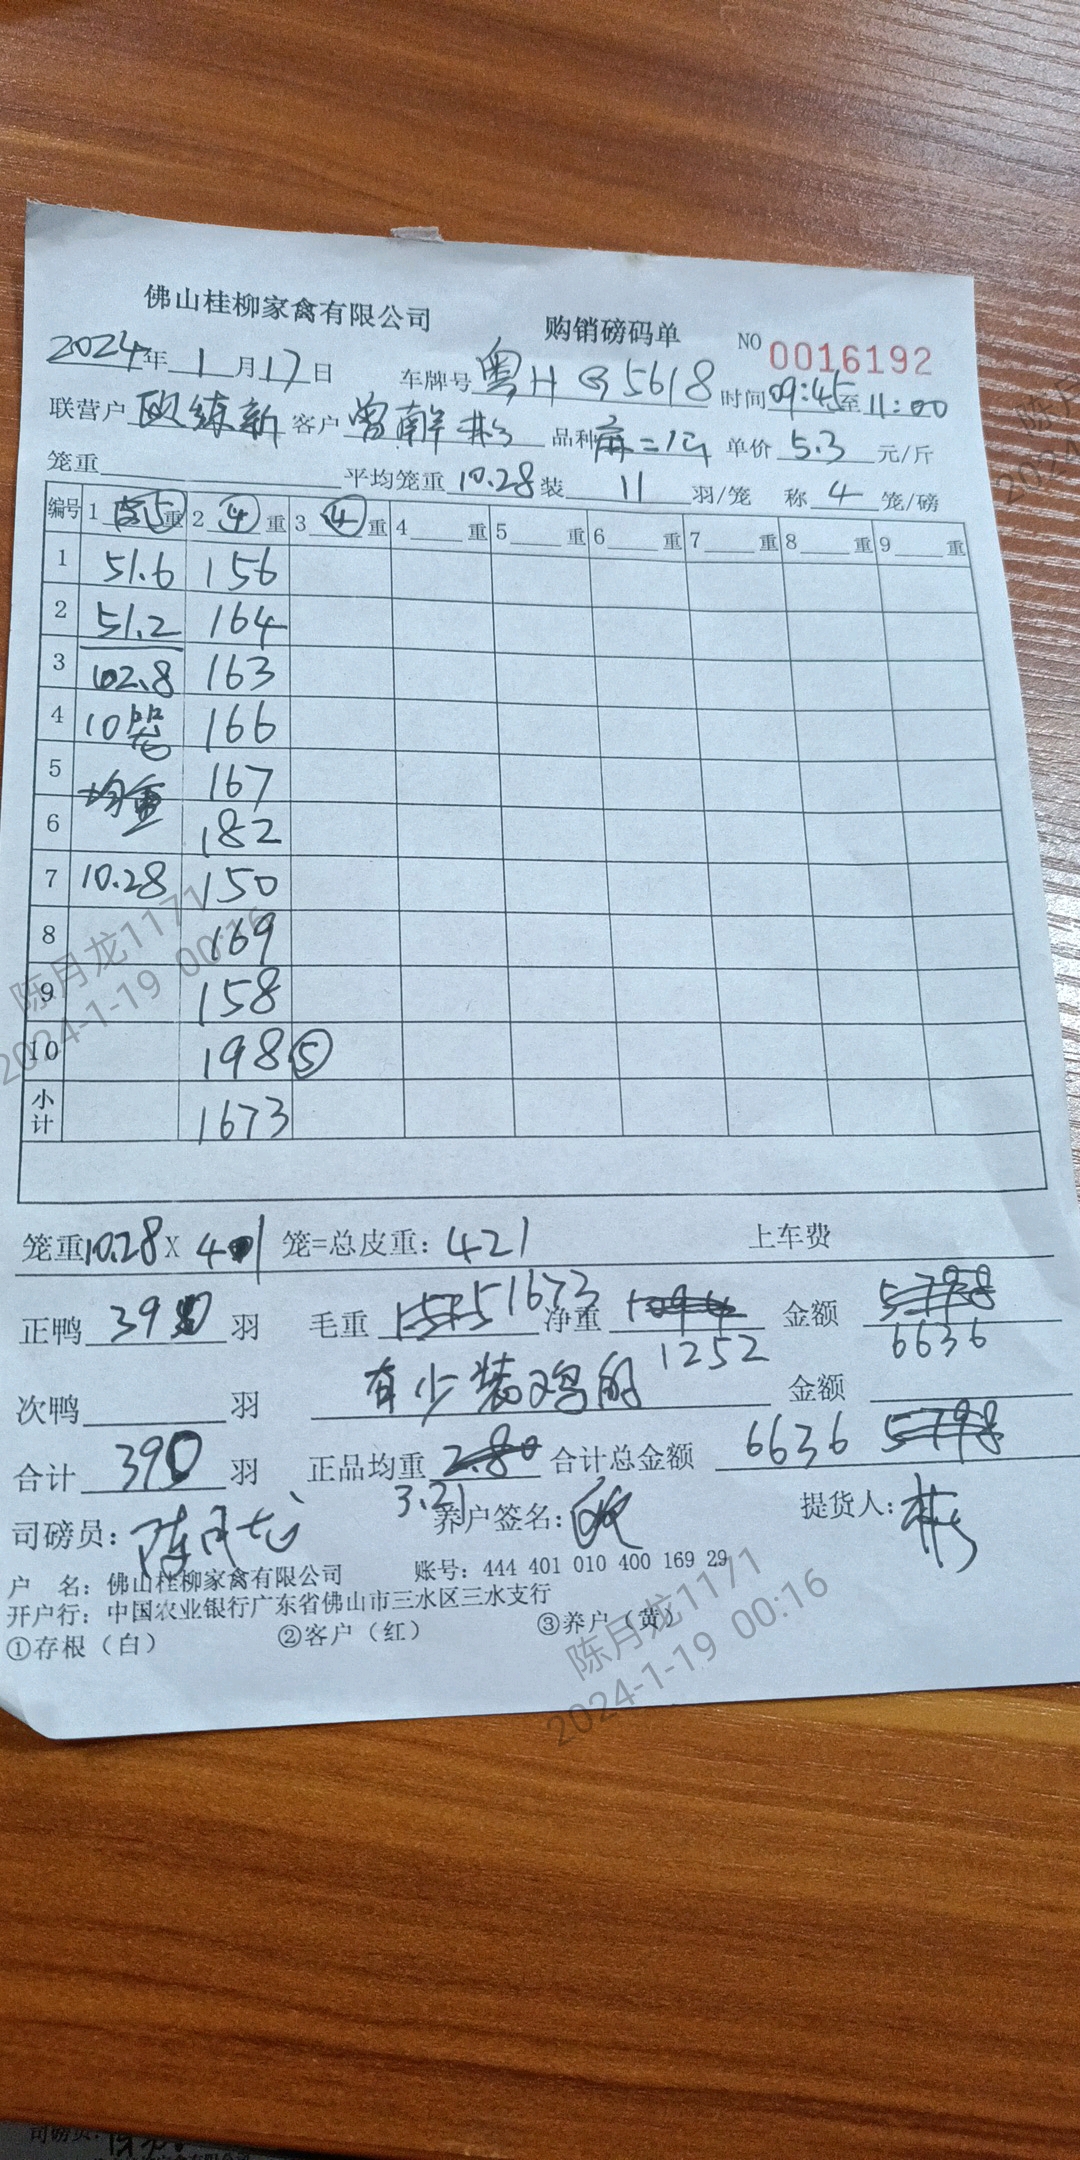 佛山桂柳家禽有限公司 购销磅码单 NO 0016192
2024年1月17日 车牌号粤HG5618 时间09:45至11:00
联营户 欧练新 客户 品种 单价 5.3 元/斤
笼重 平均笼重 10.28 装 11 羽/笼 称 4 笼/磅
编号 1 重 2 ④ 重 3 ④ 重 4 重 5 重 6 重 7 重 8 重 9 重
1 51.6 156
2 51.2 164
3 102.8 163
4 10笼 166
5 均重 167
6 182
7 10.28 150
8 169
9 158
10 198 ⑤
小计 1673
笼重10.28X 41 笼=总皮重：421 上车费
正鸭 390 羽 毛重 1673 净重 1094 金额 5798
1252 6636
次鸭 羽 有少装鸡的 金额
合计 390 羽 正品均重 2.80 合计总金额 6636 5798
3.21
司磅员：陈月龙 养户签名：欧 提货人：彬
户 名：佛山桂柳家禽有限公司 账号：444 401 010 400 169 29
开户行：中国农业银行广东省佛山市三水区三水支行
①存根（白） ②客户（红） ③养户（黄）
陈月龙1171
2024-1-19 00:16
陈月龙1171
2024-1-19 00:16
陈月
2024
司磅员：